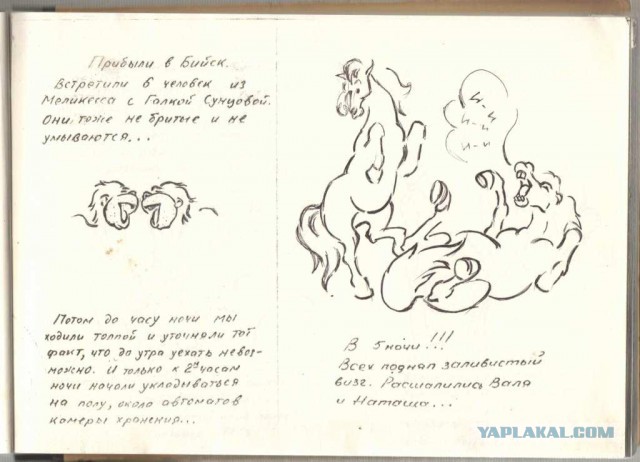 Прибыли в Бийск.
Встретили 6 человек из
Мелекесса с Галкой Сунцовой.
Они, тоже не бритые и не
умываются...
Потом до часу ночи мы
ходили толпой и уточняли тот
факт, что до утра уехать невоз-
можно. И только к 2м часам
ночи начали укладываться
на полу, около автоматов
камеры хранения...
И-И
И-И
И-И
В 5 ночи!!!
Всех поднял заливистый
визг. Расшалились Валя
и Наташа...
YAPLAKAL.COM